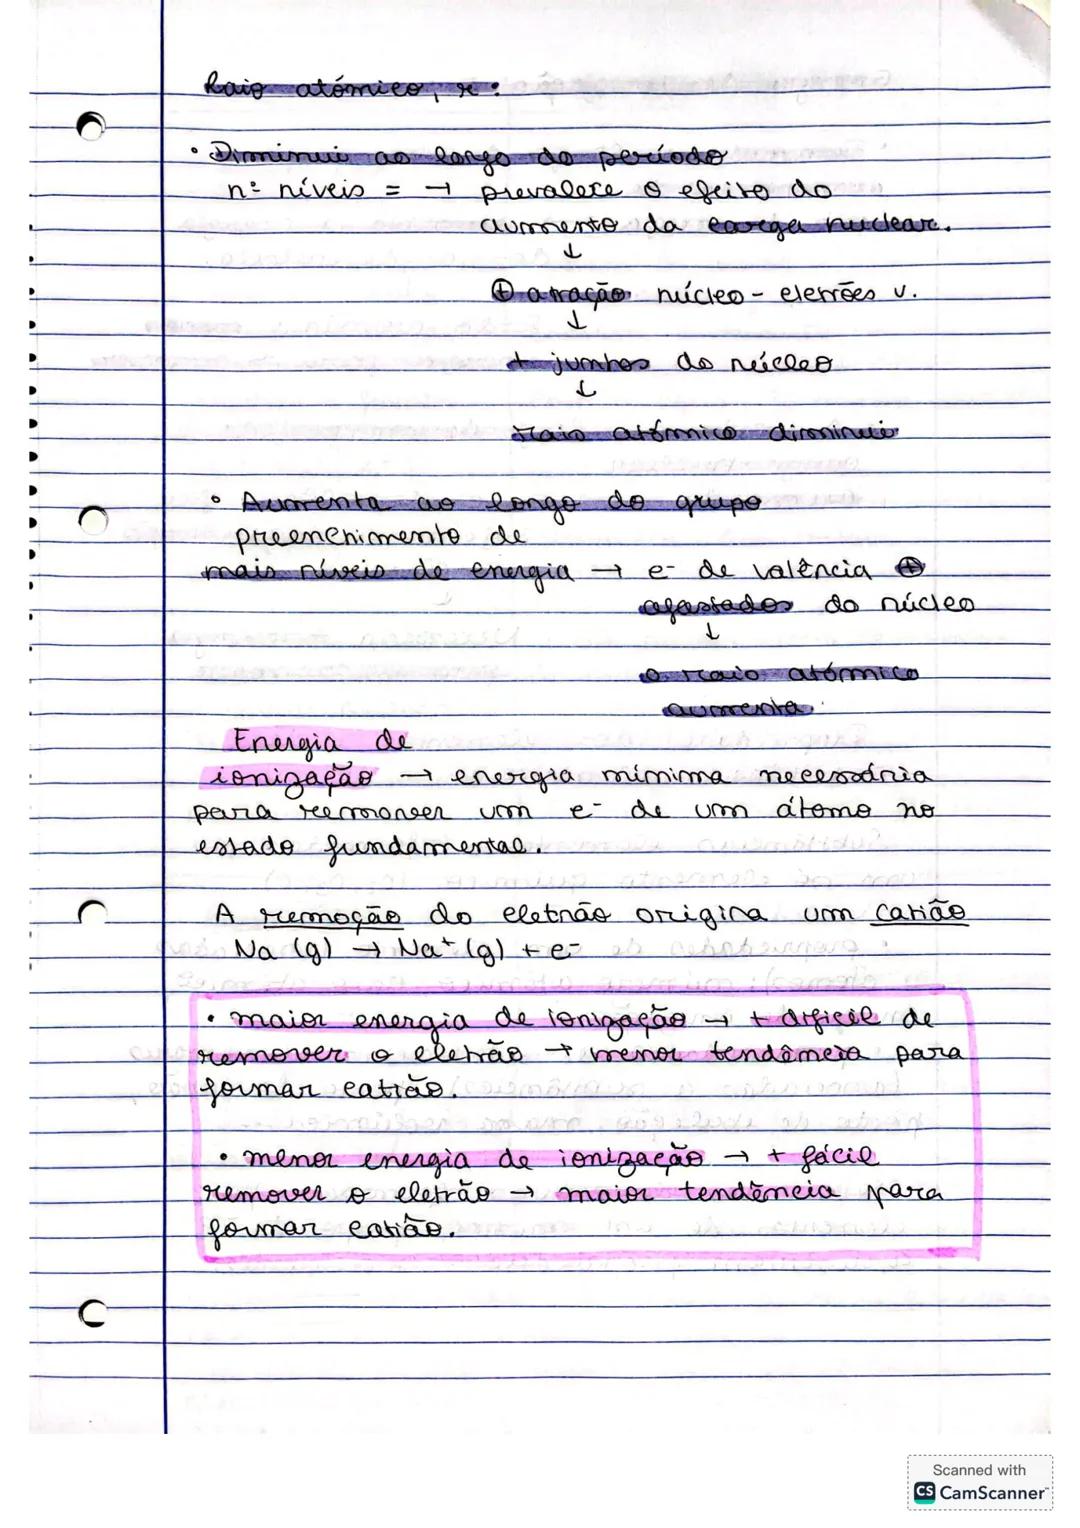 Raio atómico, r:
• Diminui ao longo do período
nº níveis = → prevalece o efeito do
aumento da carga nuclear.
↓
⊕ atração núcleo - eletrões v.
↓
+ juntos do núcleo
↓
raio atómico diminui
• Aumenta ao longo do grupo
preenchimento de
mais níveis de energia → e- de valência ⊕
afastados do núcleo
↓
o raio atómico
aumenta.
Energia de
ionização → energia mínima necessária
para remover um e- de um átomo no
estado fundamental.
A remoção do eletrão origina um catião
Na (g) → Na+ (g) + e-
• maior energia de ionização → + difícil de
remover o eletrão → menor tendência para
formar catião.
• menor energia de ionização → + fácil
remover o eletrão → maior tendência para
formar catião.
Scanned with
CS CamScanner